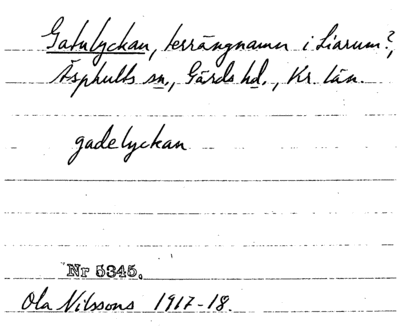 Gatulyckan, terrängnamn i Liarum?,
Äsphults sn., Gärds hd., Kr. län.
gadelyckan
Nr 5345.
Ola Nilssons 1917-18.